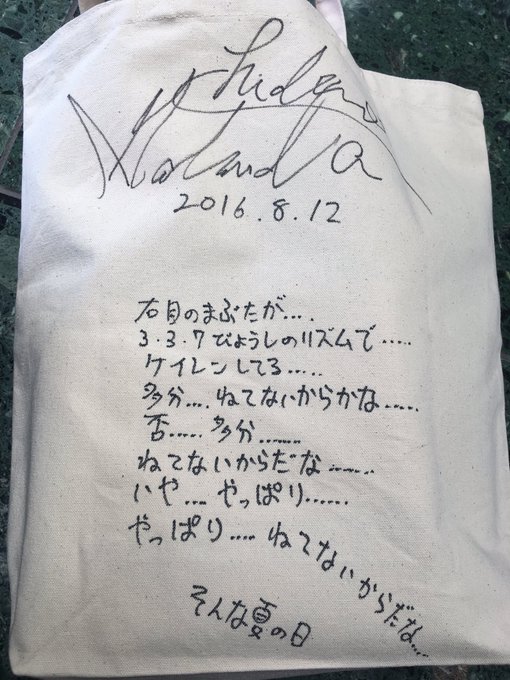 2016.8.12
右目のまぶたが....
3.3.7びょうしのリズムで.....
ケイレンしてる.....
多分.... ねてないからかな.....
否..... 多分......
ねてないからだな......
いや.... やっぱり......
やっぱり.... ねてないからだな....
そんな夏の日